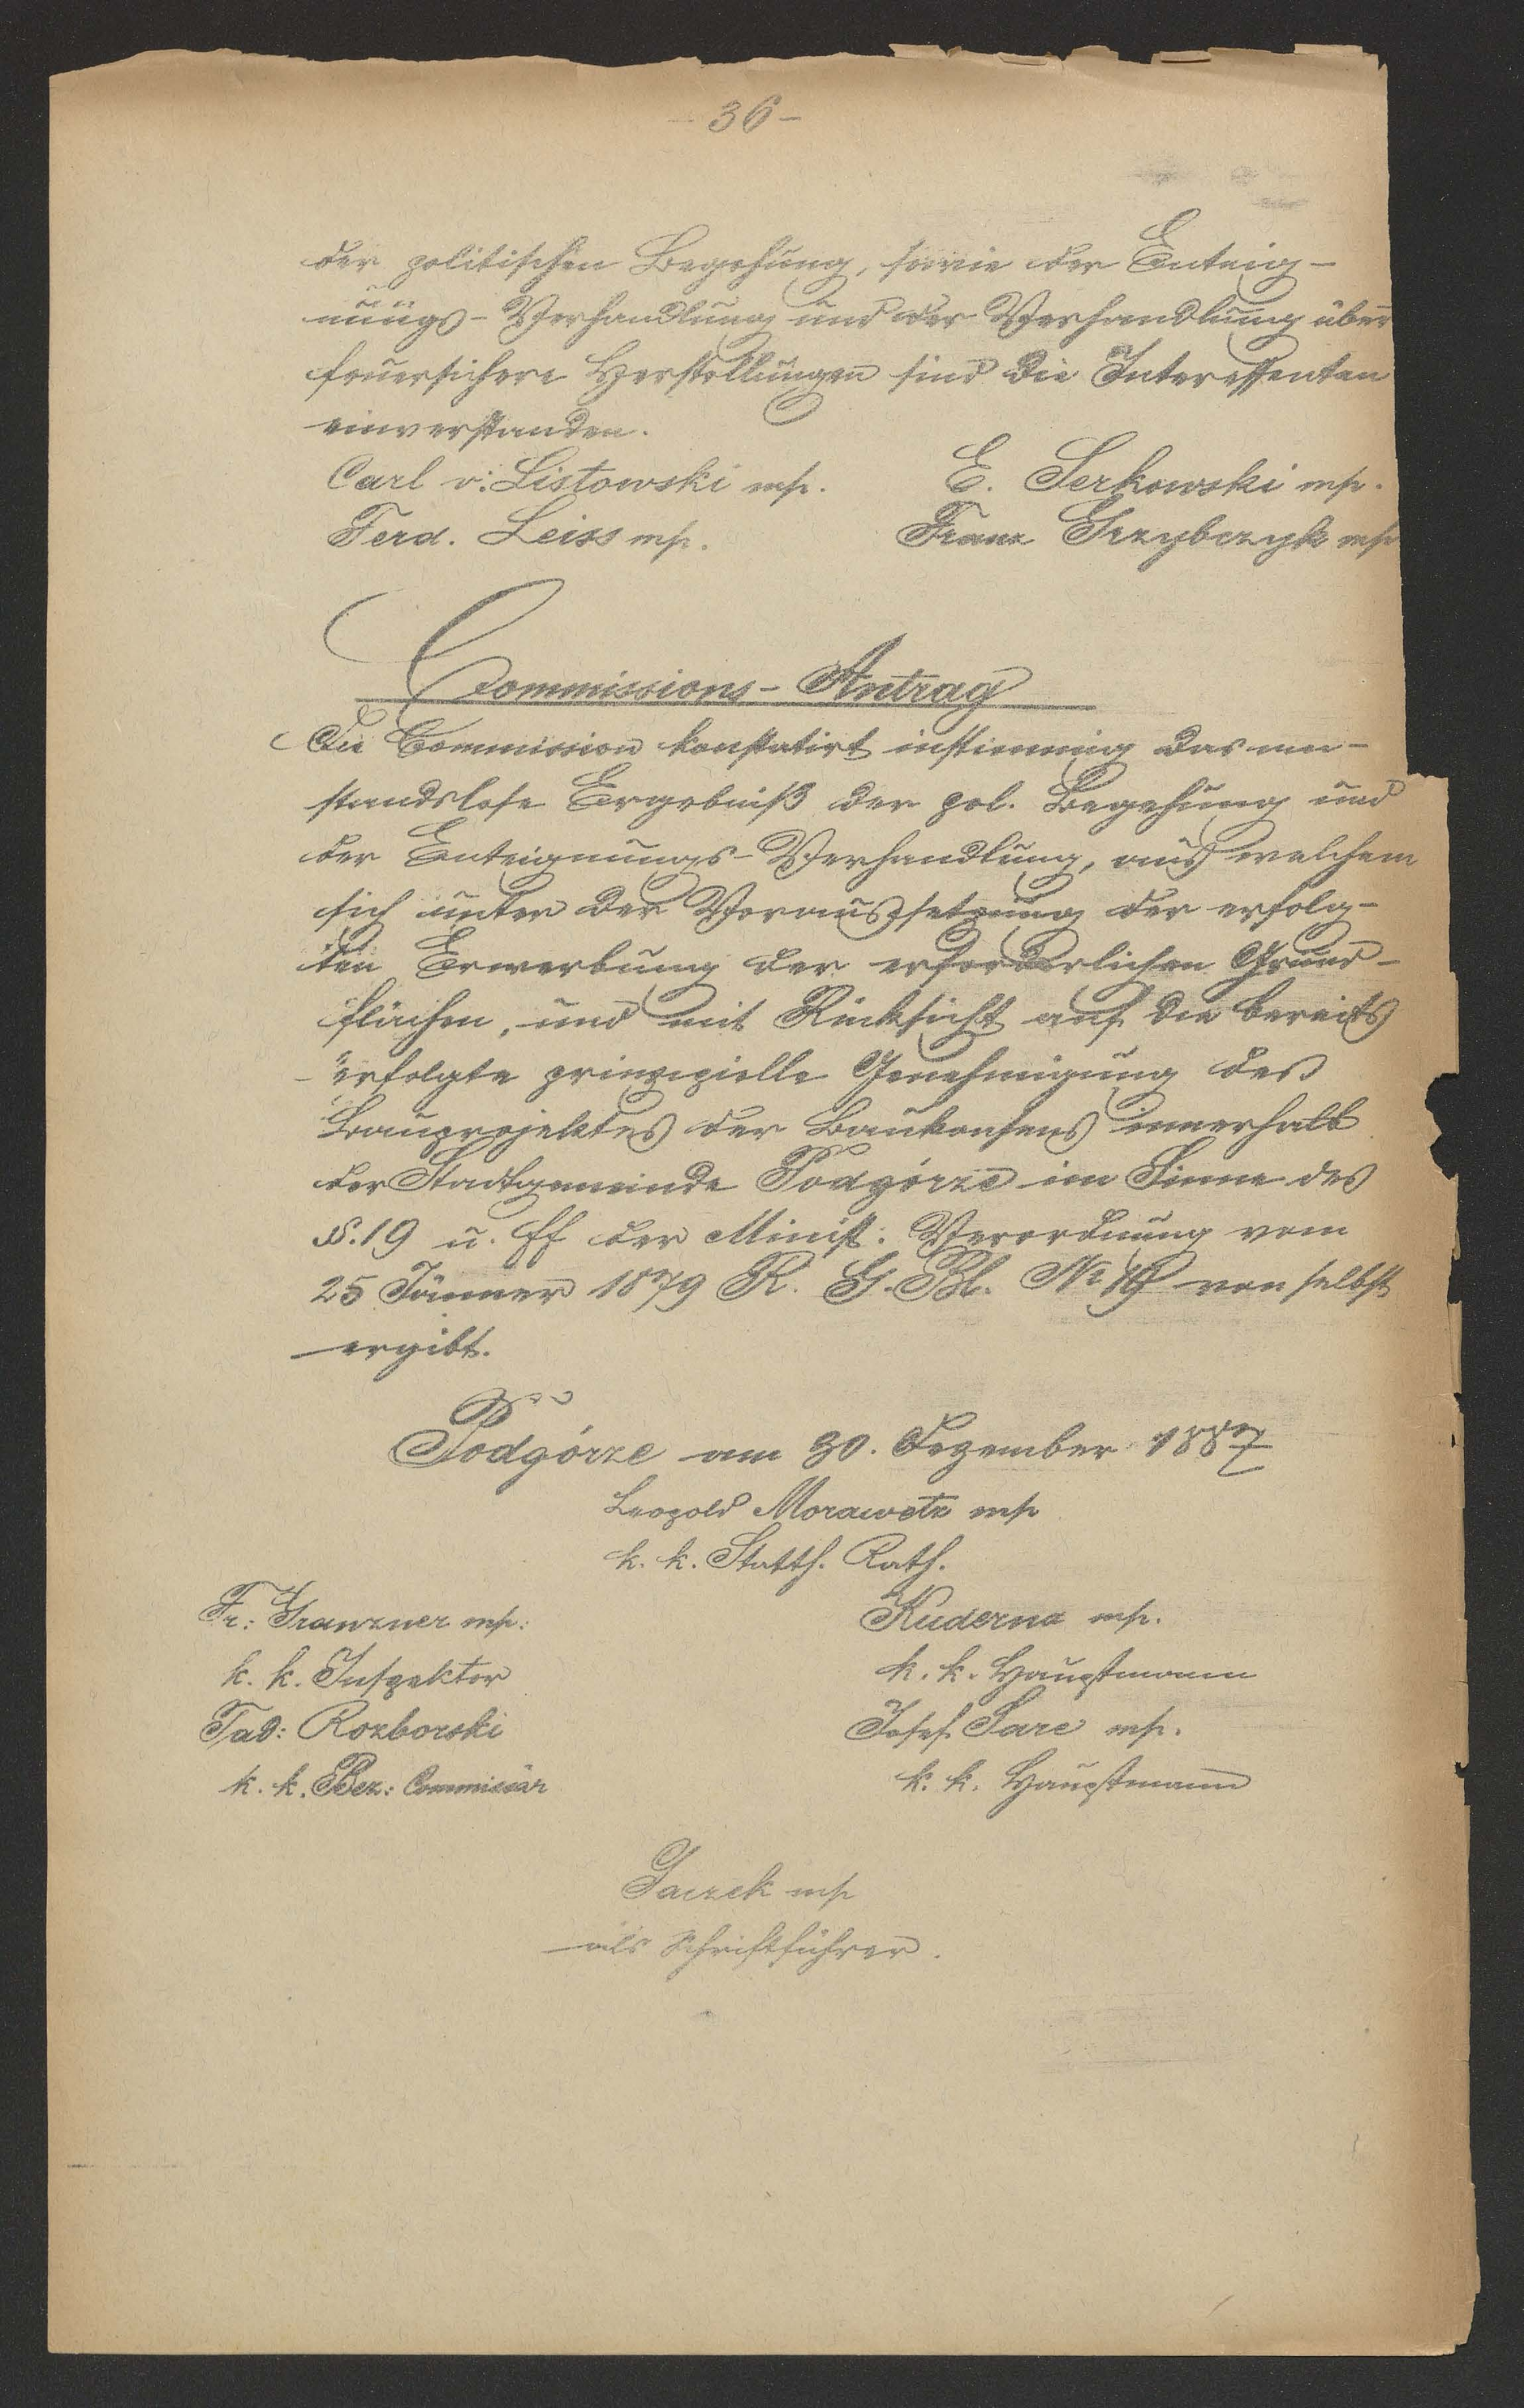 - 36 -
der politischen Begehung, sowie der Enteig-
nungs-Verhandlung und der Verhandlung über
feuersichere Herstellungen sind die Interessenten
einverstanden.
Carl v: Listowski mp. E. Serkowski mp.
Ferd. Leiss mp. Franz Grzybczyk mp
Commissions-Antrag
Die Commission konstatirt das an-
standslose Ergebniß der pol. Begehung und
der Enteignungs-Verhandlung, aus welchem
sich unter der Voraussetzung der erfolg-
ten Erwerbung der erforderlichen Grund-
flächen, und mit Rücksicht auf die bereits
erfolgte prinzipielle Genehmigung des
Bauprojektes der Baukonsens innerhalb
der Stadtgemeinde Podgórze im Sinne des
§. 19 u. ff der Minist: Verordnung vom
25 Jänner 1879 R. G. Bl. No 19 von selbst
ergibt.
Podgórze am 30. Dezember 1887
Leopold Morawetz mp
k. k. Statth. Rath.
Fr: mp: Kuderna mp.
k. k. Inspektor k. k. Hauptmann
Tad: Rozborski Josef Sare mp.
k. k. Bez: Commissär k. k. Hauptmann
Gaczek mp
als Schriftführer.